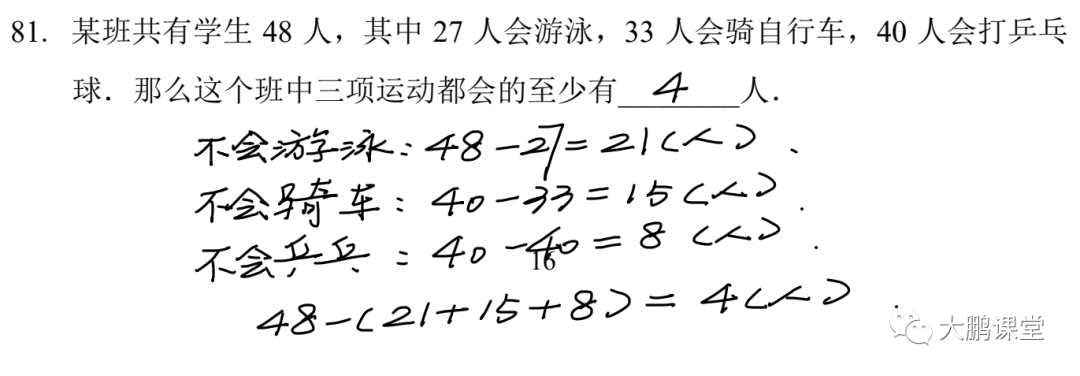 81. 某班共有学生 48 人，其中 27 人会游泳，33 人会骑自行车，40 人会打乒乓
球．那么这个班中三项运动都会的至少有 4 人．
不会游泳：48-27=21(人)、
不会骑车：40-33=15(人).
不会乒乓：40-40=8(人).
16
48-(21+15+8)=4(人).
大鹏课堂